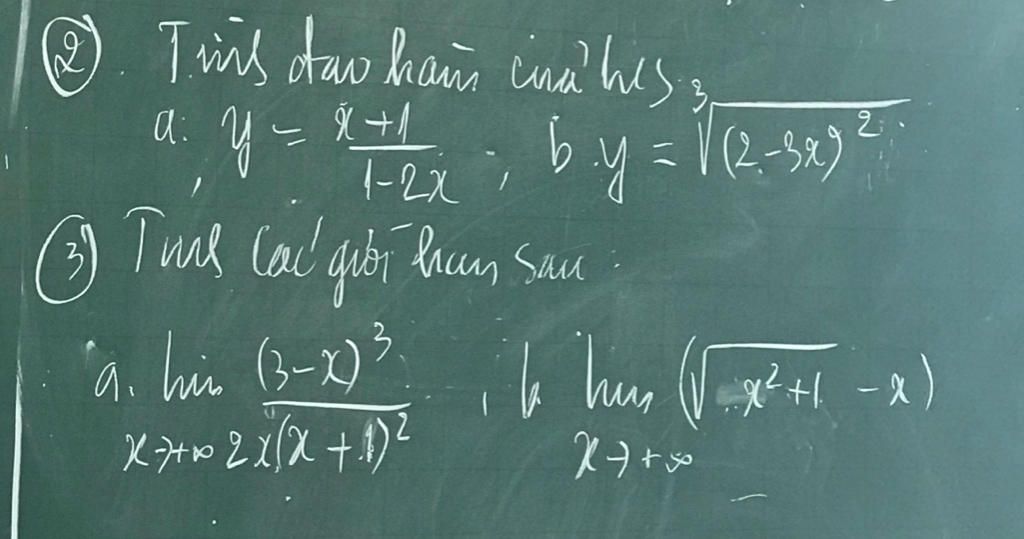 ② Tính đạo hàm của h/s:
a. y = (x+1)/(1-2x), b. y = ∛((2-3x)²)
③ Tính các giới hạn sau:
a. lim x→+∞ (3-x)³/(2x(x+1)²), b. lim x→+∞ (√(x²+1) - x)